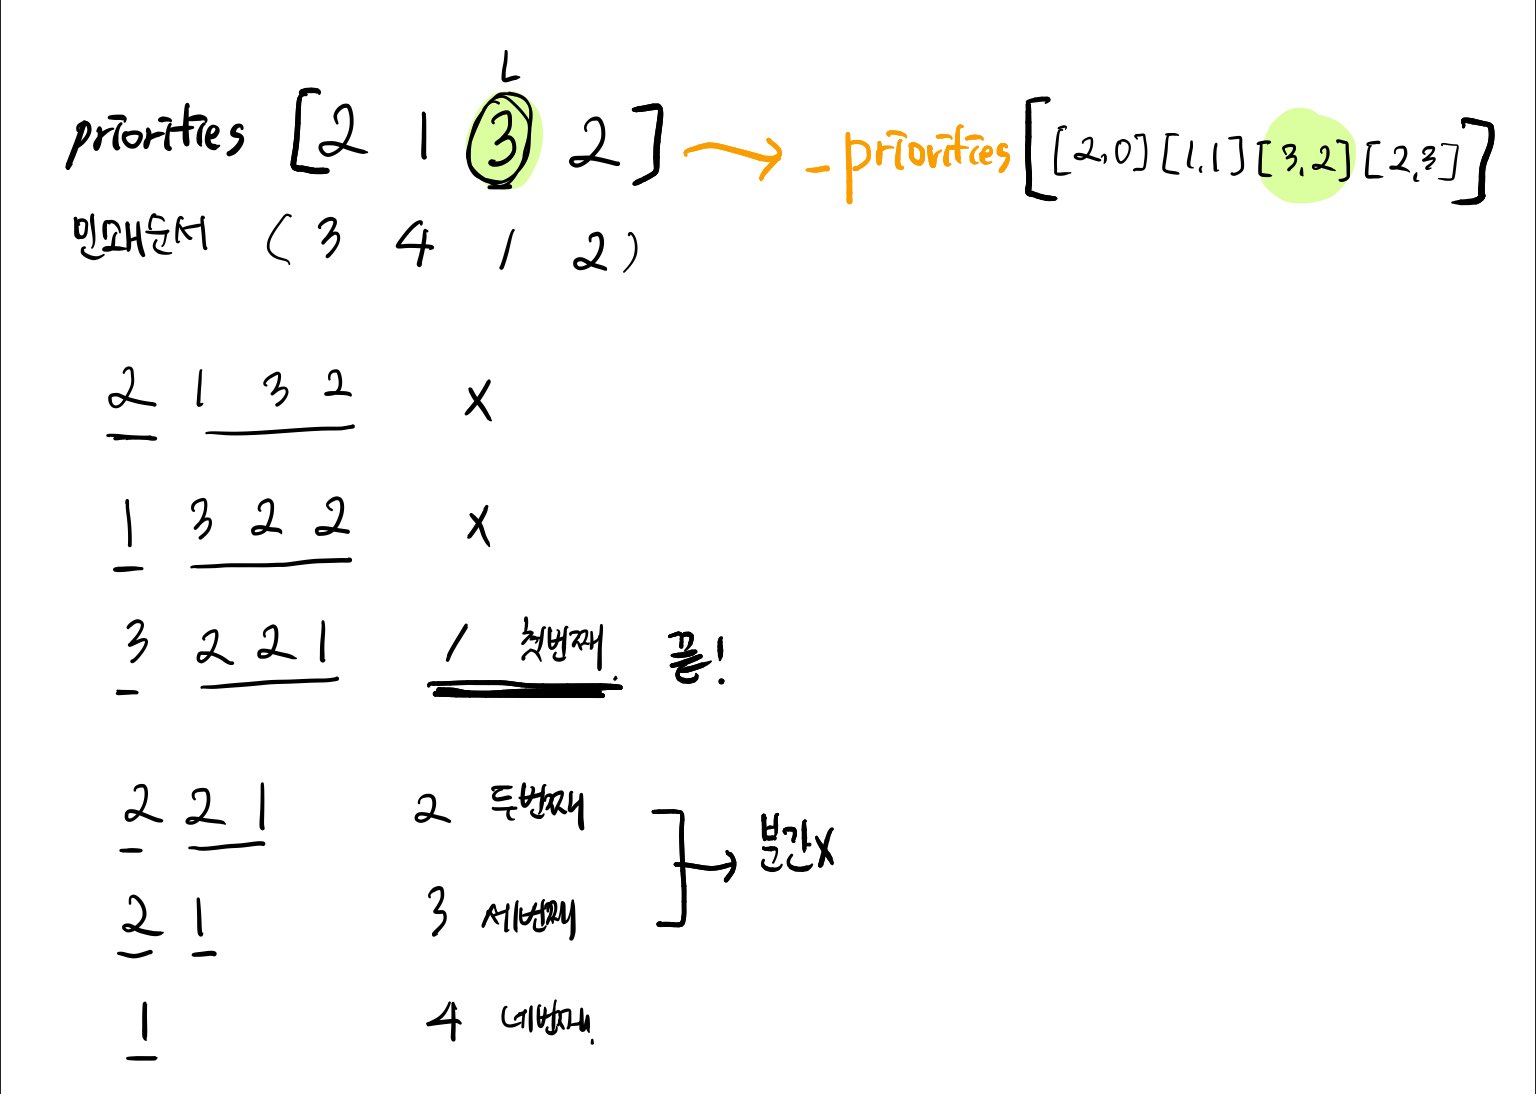 L
priorities [2 1 3 2] → _priorities [[2,0] [1,1] [3,2] [2,3]]
인쇄순서 (3 4 1 2)
2 1 3 2 X
1 3 2 2 X
3 2 2 1 1 첫번째. 끝!
2 2 1 2 두번째
분간X
2 1 3 세번째
1 4 네번째.